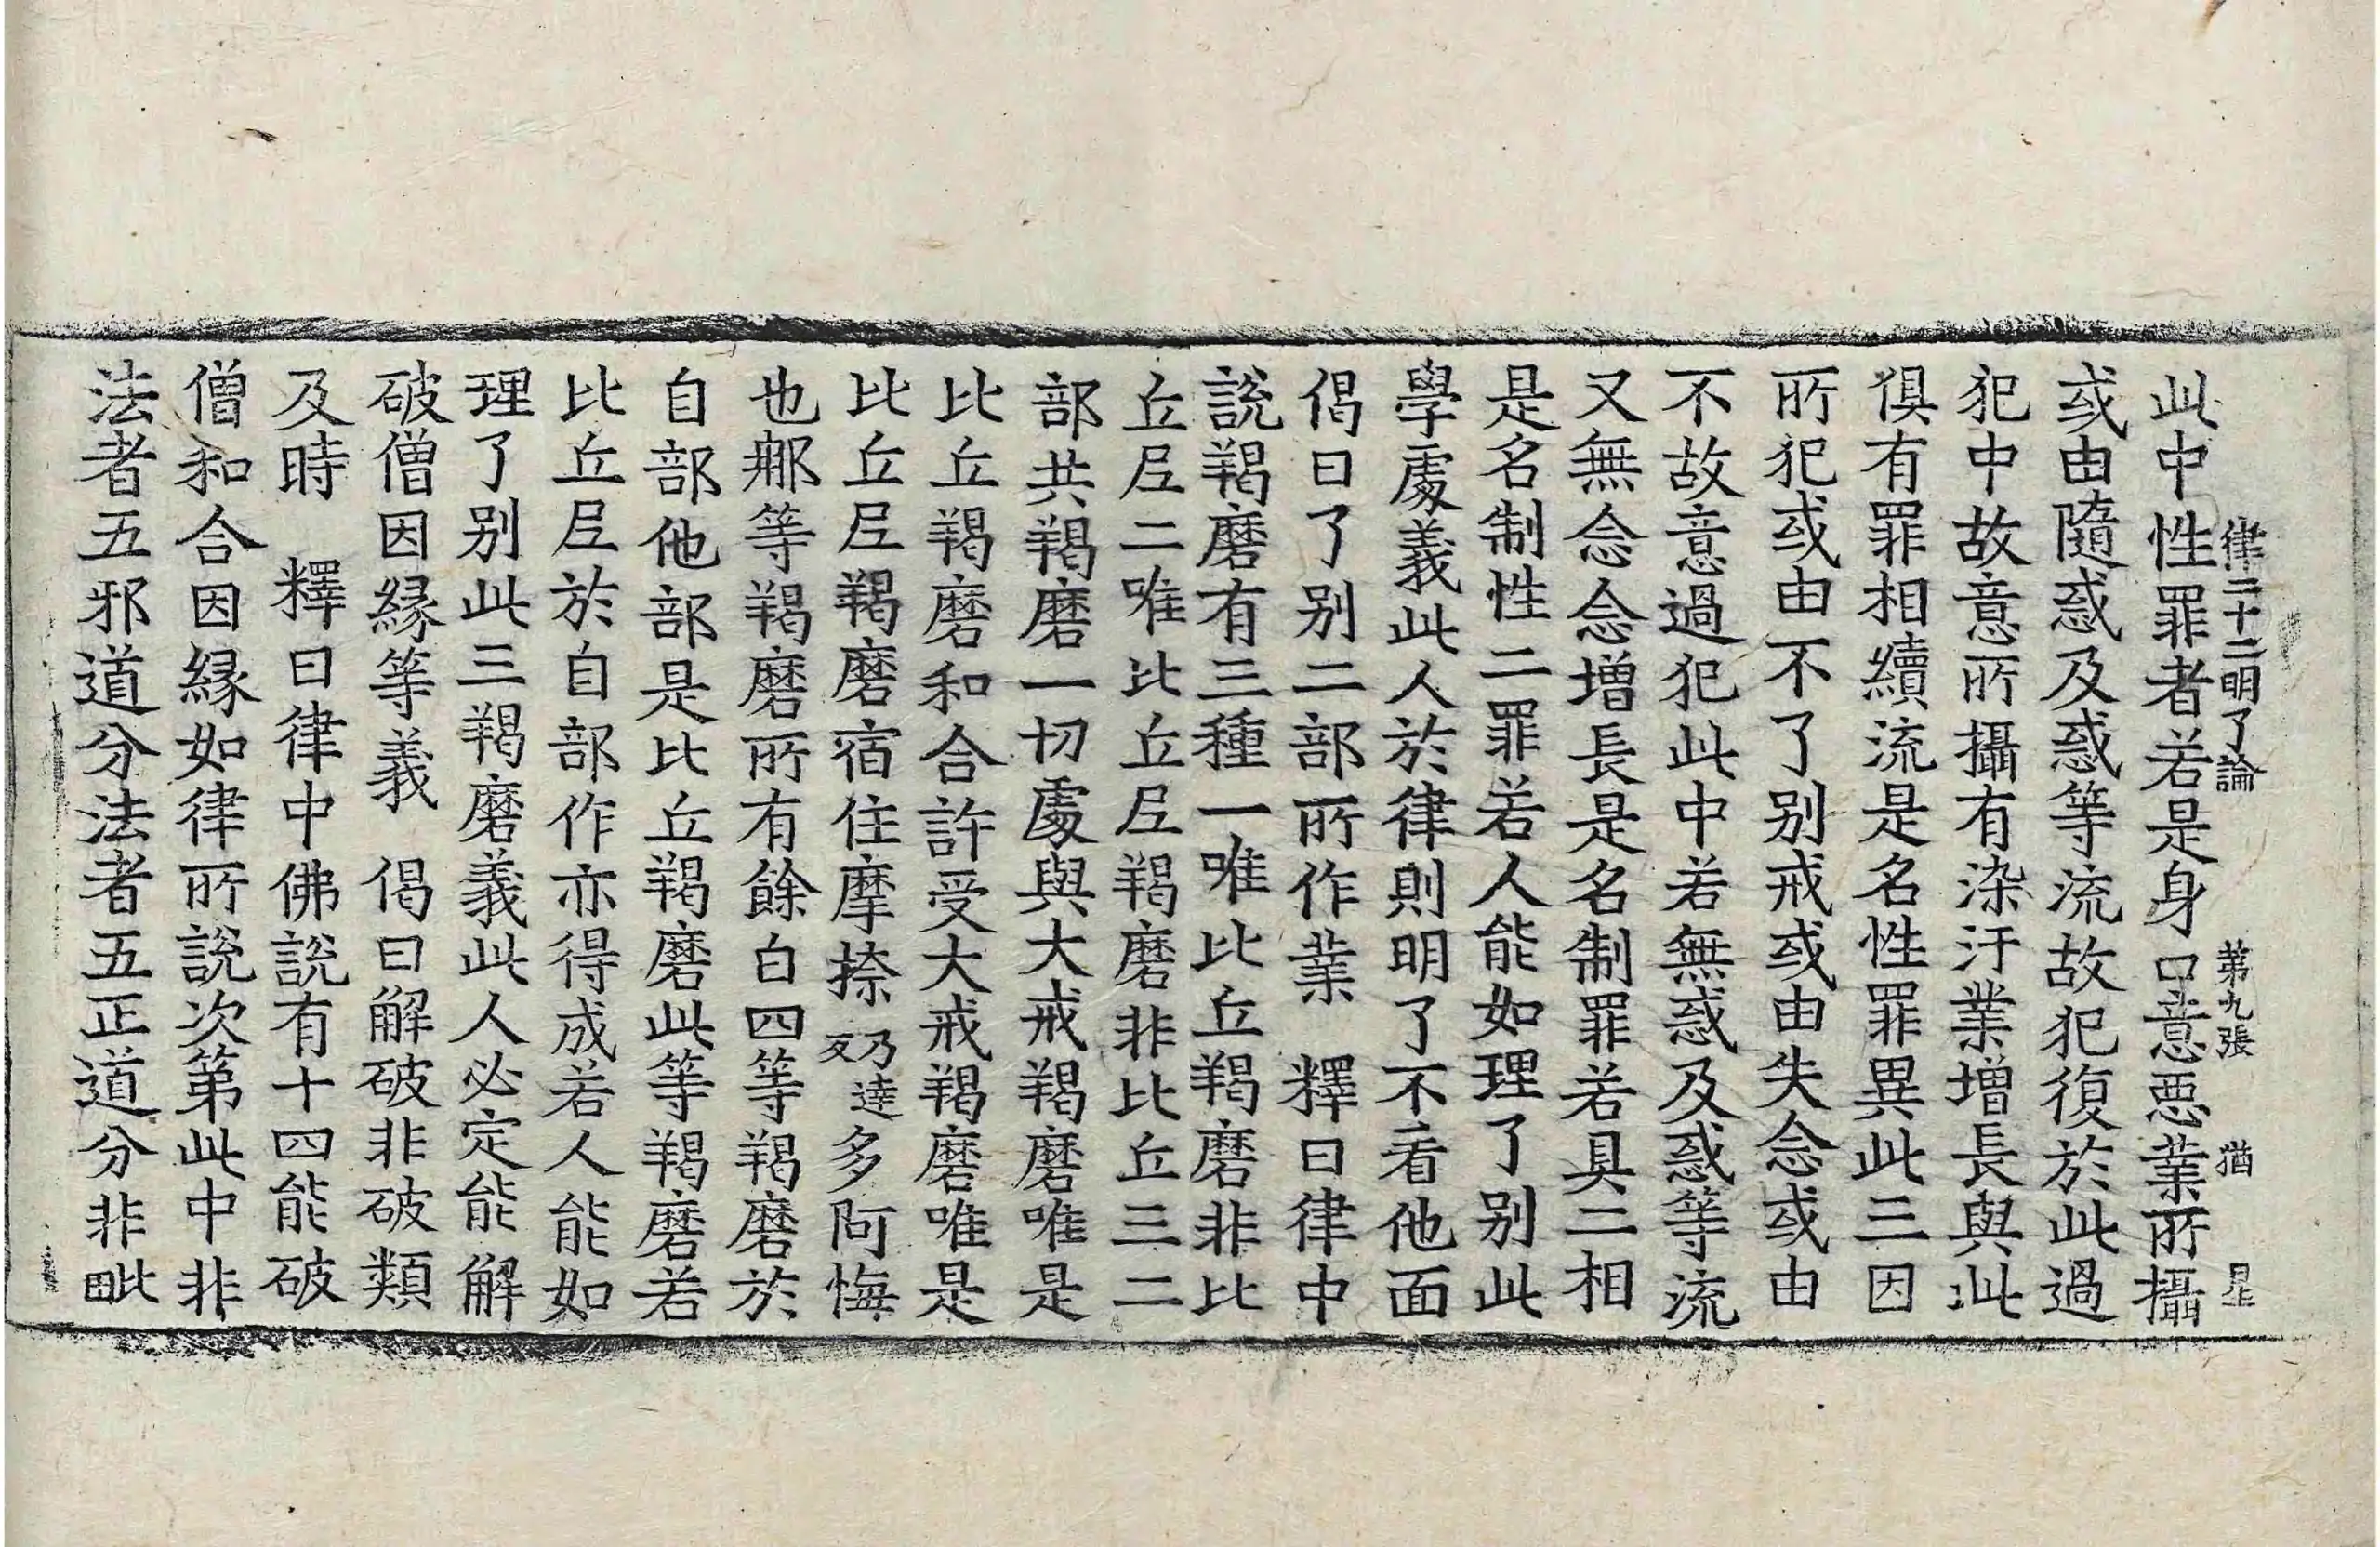 律二十二明了論 第九張 猶 星
此中性罪者若是身口意惡業所攝
或由隨惑及惑等流故犯復於此過
犯中故意所攝有染汙業增長與此
俱有罪相續流是名性罪異此三因
所犯或由不了別戒或由失念或由
不故意過犯此中若無惑及惑等流
又無念念增長是名制罪若具二相
是名制性二罪若人能如理了別此
學處義此人於律則明了不看他面
偈曰了別二部所作業 釋曰律中
說羯磨有三種一唯比丘羯磨非比
丘尼二唯比丘尼羯磨非比丘三二
部共羯磨一切處與大戒羯磨唯是
比丘羯磨和合許受大戒羯磨唯是
比丘尼羯磨宿住摩捺乃達反多阿悔
也鄊等羯磨所有餘白四等羯磨於
自部他部是比丘羯磨此等羯磨若
比丘尼於自部作亦得成若人能如
理了別此三羯磨義此人必定能解
破僧因緣等義 偈曰解破非破類
及時 釋曰律中佛說有十四能破
僧和合因緣如律所說次第此中非
法者五邪道分法者五正道分非毗